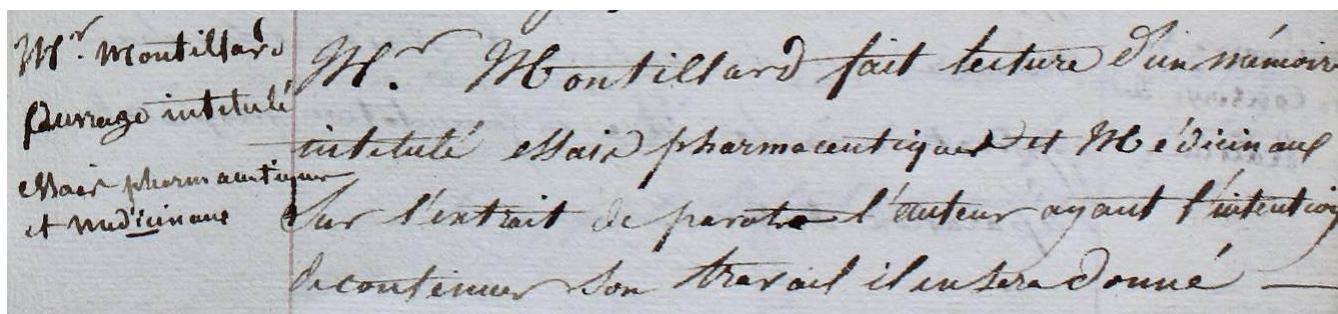 Mr. Montillard
Ouvrage intitulé
essais pharmaceutiques
et médicinaux
Mr. Montillard fait lecture d'un mémoire
intitulé essais pharmaceutiques et Médicinaux
Sur l'extrait de l'auteur ayant l'intention
de continuer son travail il en sera donné —